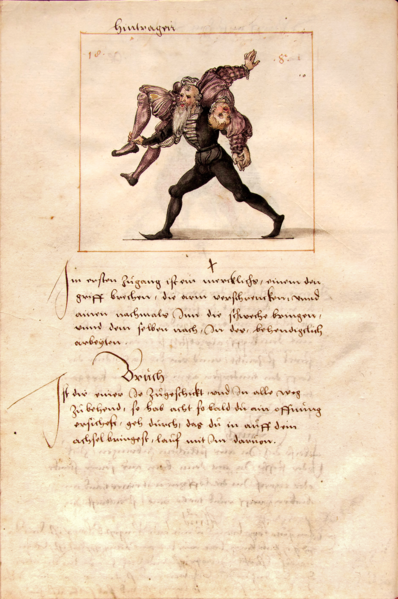 Hintragen
18. 8.
Im ersten Zugang ist ein mercklichs, einem den
griff brechen, die arm verschrencken, unnd
ainen nachmals Inn die schweche bringen,
unnd dem selben nach, In der, behendigclich
arbeyten
Bruch
Ist dir einer So Zugeschickt und In alle weg
Zu behend, so hab acht so bald du ain offnung
ersichest, geh durch, das du in auff dem
achsel bringest, lauf mit Im darvon.